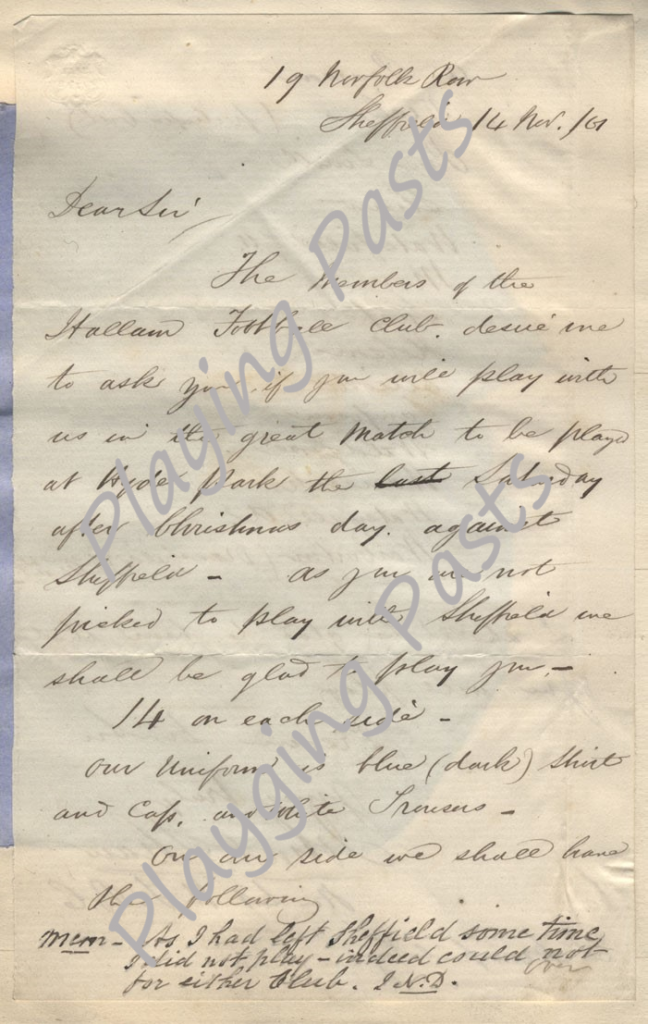 19 Norfolk Row
Sheffield 14 Nov. /61
Dear Sir
The Members of the
Hallam Football Club. desire me
to ask you, if you will play with
us in the great Match to be played
at Hyde Park the last Saturday
after Christmas day. against
Sheffield – as you are not
picked to play with Sheffield we
shall be glad to play you –
14 on each side –
our Uniform is blue (dark) Shirt
and Cap, and White Trousers –
On our side we shall have
the following
over
Mem – As I had left Sheffield some time,
I did not play – indeed could not
for either Club. I.N.D.
Playging Pasts
Playging Pasts